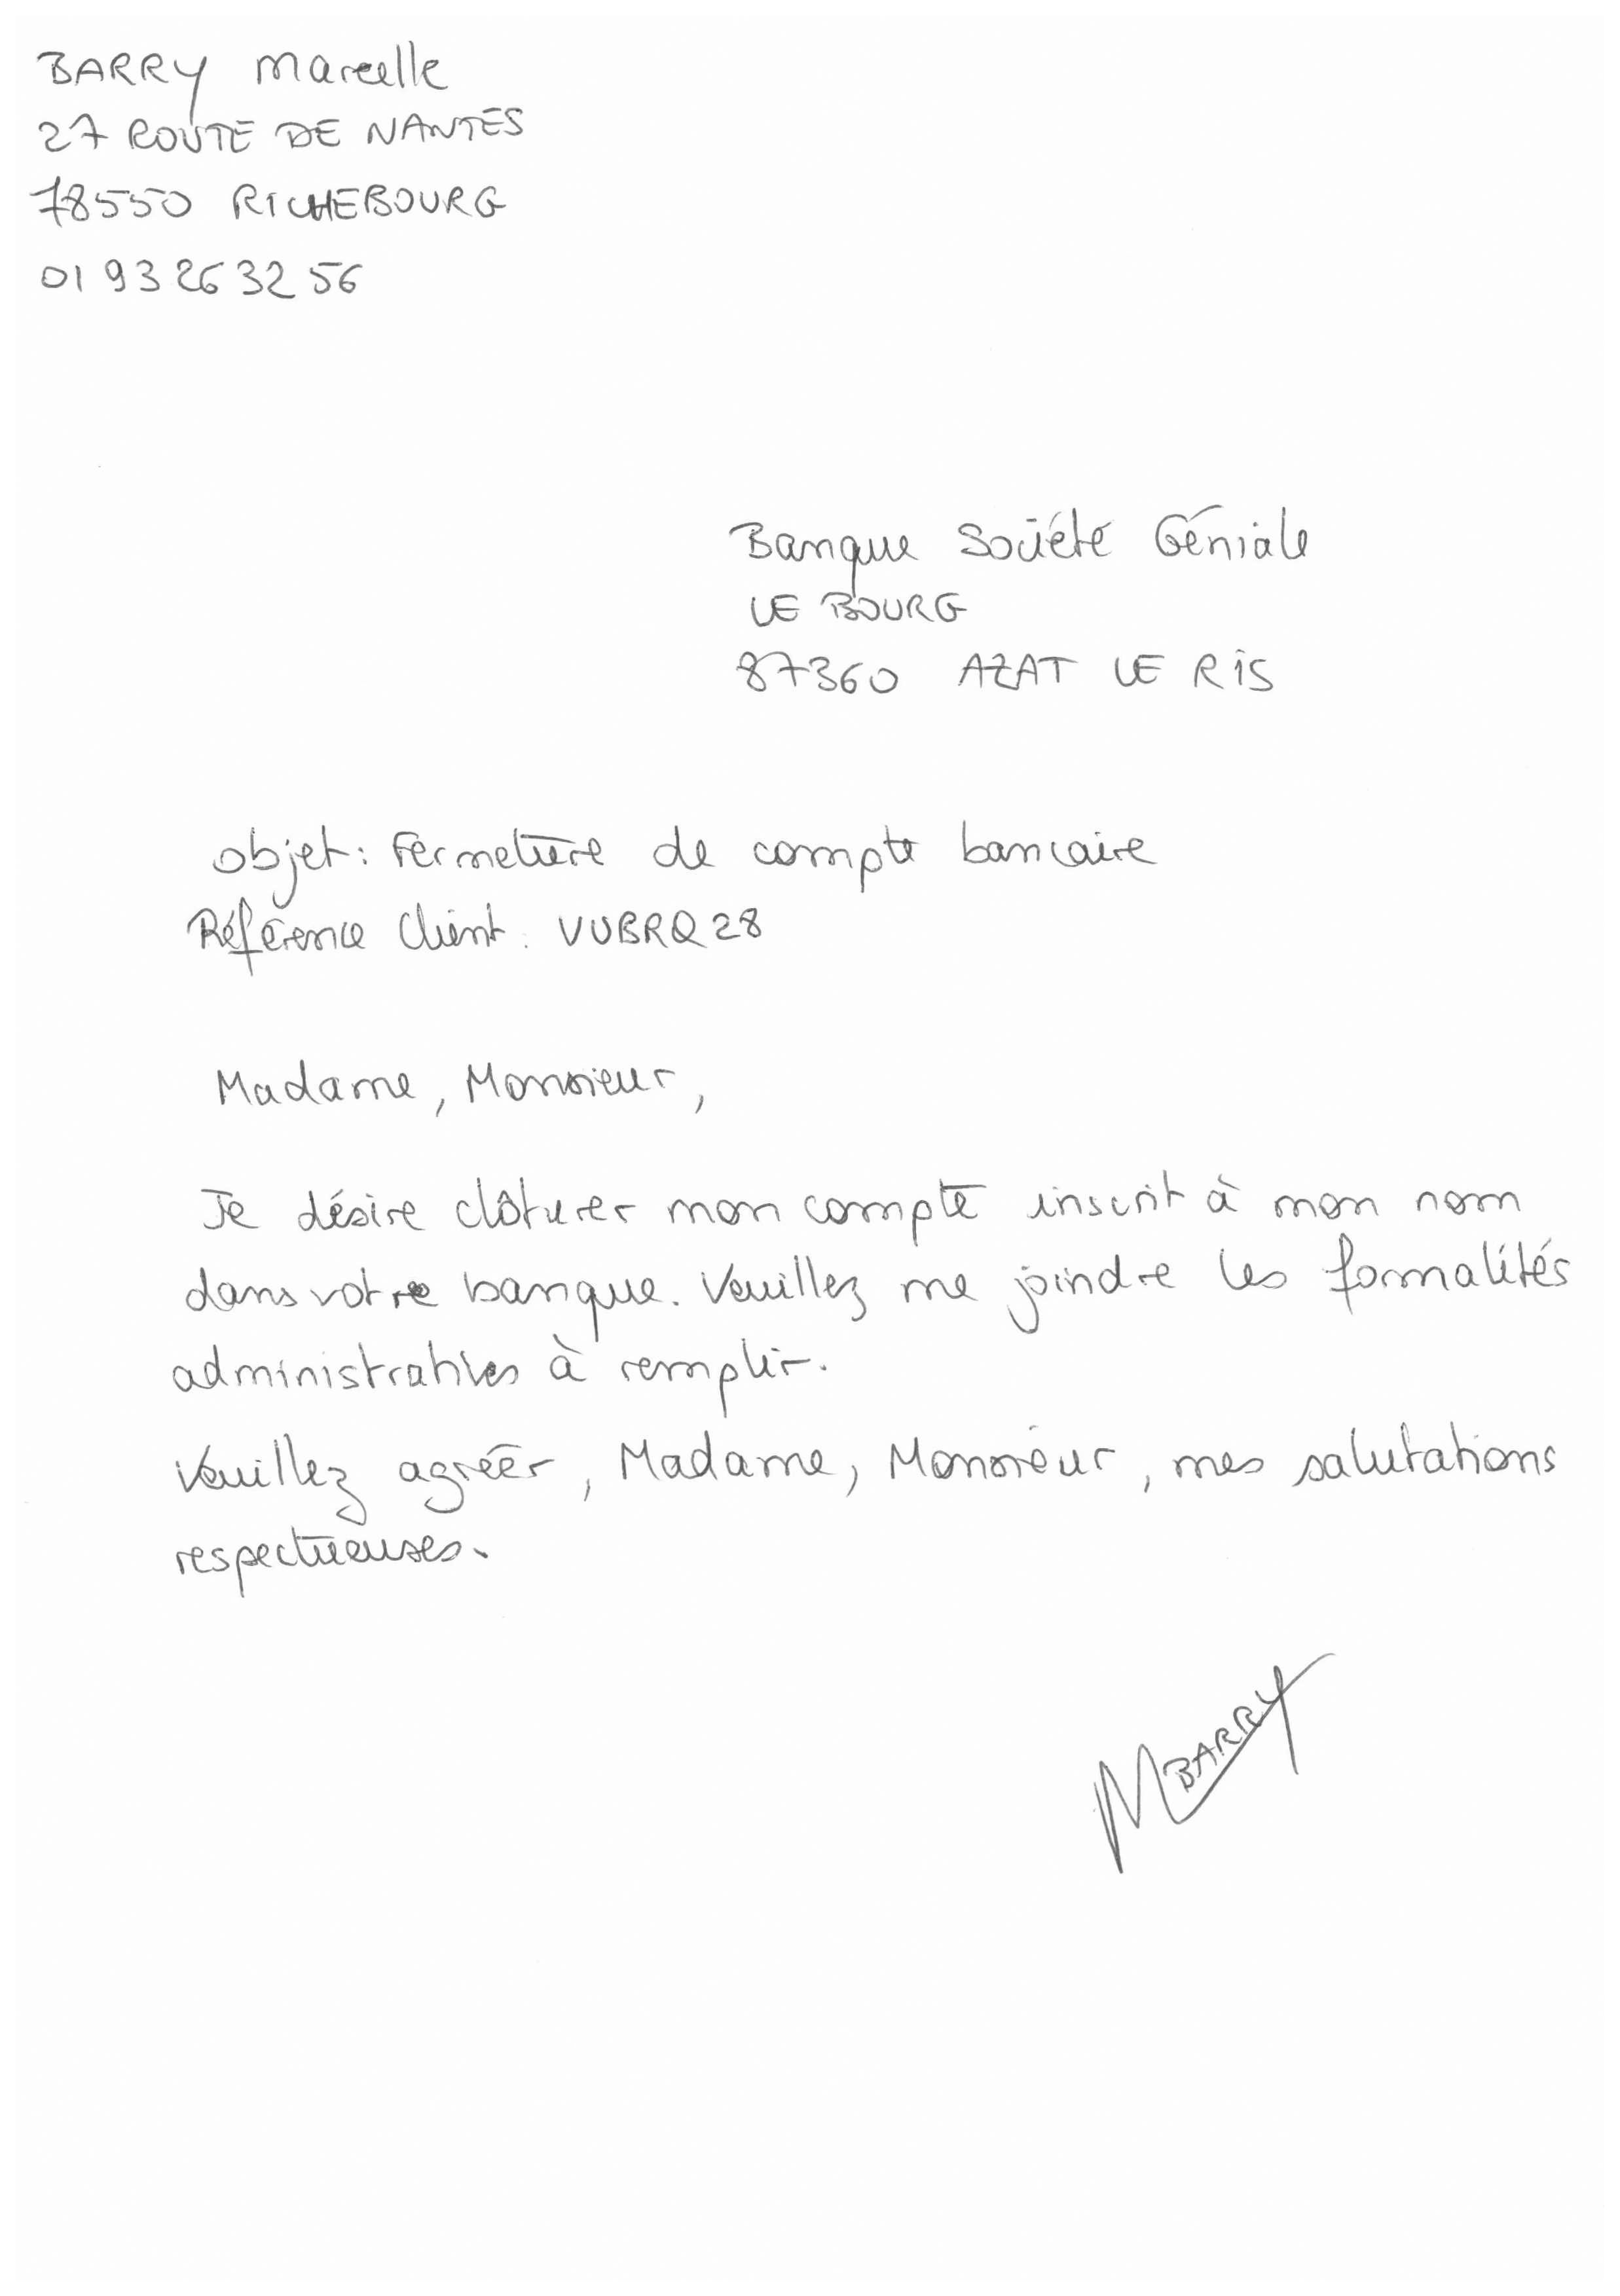 BARRY Marcelle
27 ROUTE DE NANTES
78550 RICHEBOURG
01 93 26 32 56
Banque Société Géniale
LE BOURG
87360 AZAT LE RIS
objet: Fermeture de compte bancaire
Référence Client: VUBRQ28
Madame, Monsieur,
Je désire clôturer mon compte inscrit à mon nom
dans votre banque. Veuillez me joindre les formalités
administratives à remplir.
Veuillez agréer, Madame, Monsieur, mes salutations
respectueuses.
MBARRY